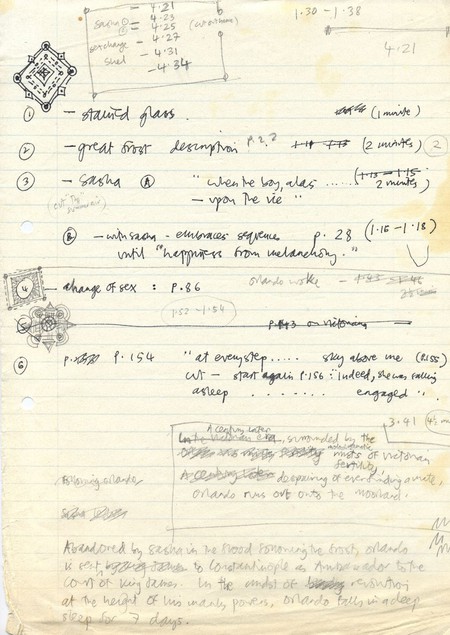 - 4.21
1.30 - 1.38
- 4.23
Sasha ①
② - 4.25
- 4.27
sex change
- 4.31
Shel
- 4.34
4.21
① - stained glass. (1 minute)
② - great frost description p.22 (2 minutes) ②
③ - Sasha Ⓐ "when the boy, alas ...... 2 minutes)
- upon the vie"
Ⓑ - with sasha - embraces sequence p. 28 (1.15 - 1.18)
until "happiness from melancholy."
④ - change of sex : p.86 Orlando woke -
1.52 - 1.54
⑤ p.143 on Victoriana
⑥ p. 154 "at every step ..... sky above me (p.155)
cut - start again p.156 : "Indeed, she was falling
asleep ........ engaged"
3.41
A century later
In the Victorian era, surrounded by the
mists of Victorian
fertility,
despairing of ever finding a mate,
Orlando runs out onto the moorland.
Following Orlander
Abandoned by Sasha in the flood following the frost, Orlando
is sent to Constantinople as Ambassador to the
Court of King James. In the midst of revolution
at the height of his manly powers, Orlando falls in a deep
sleep for 7 days.